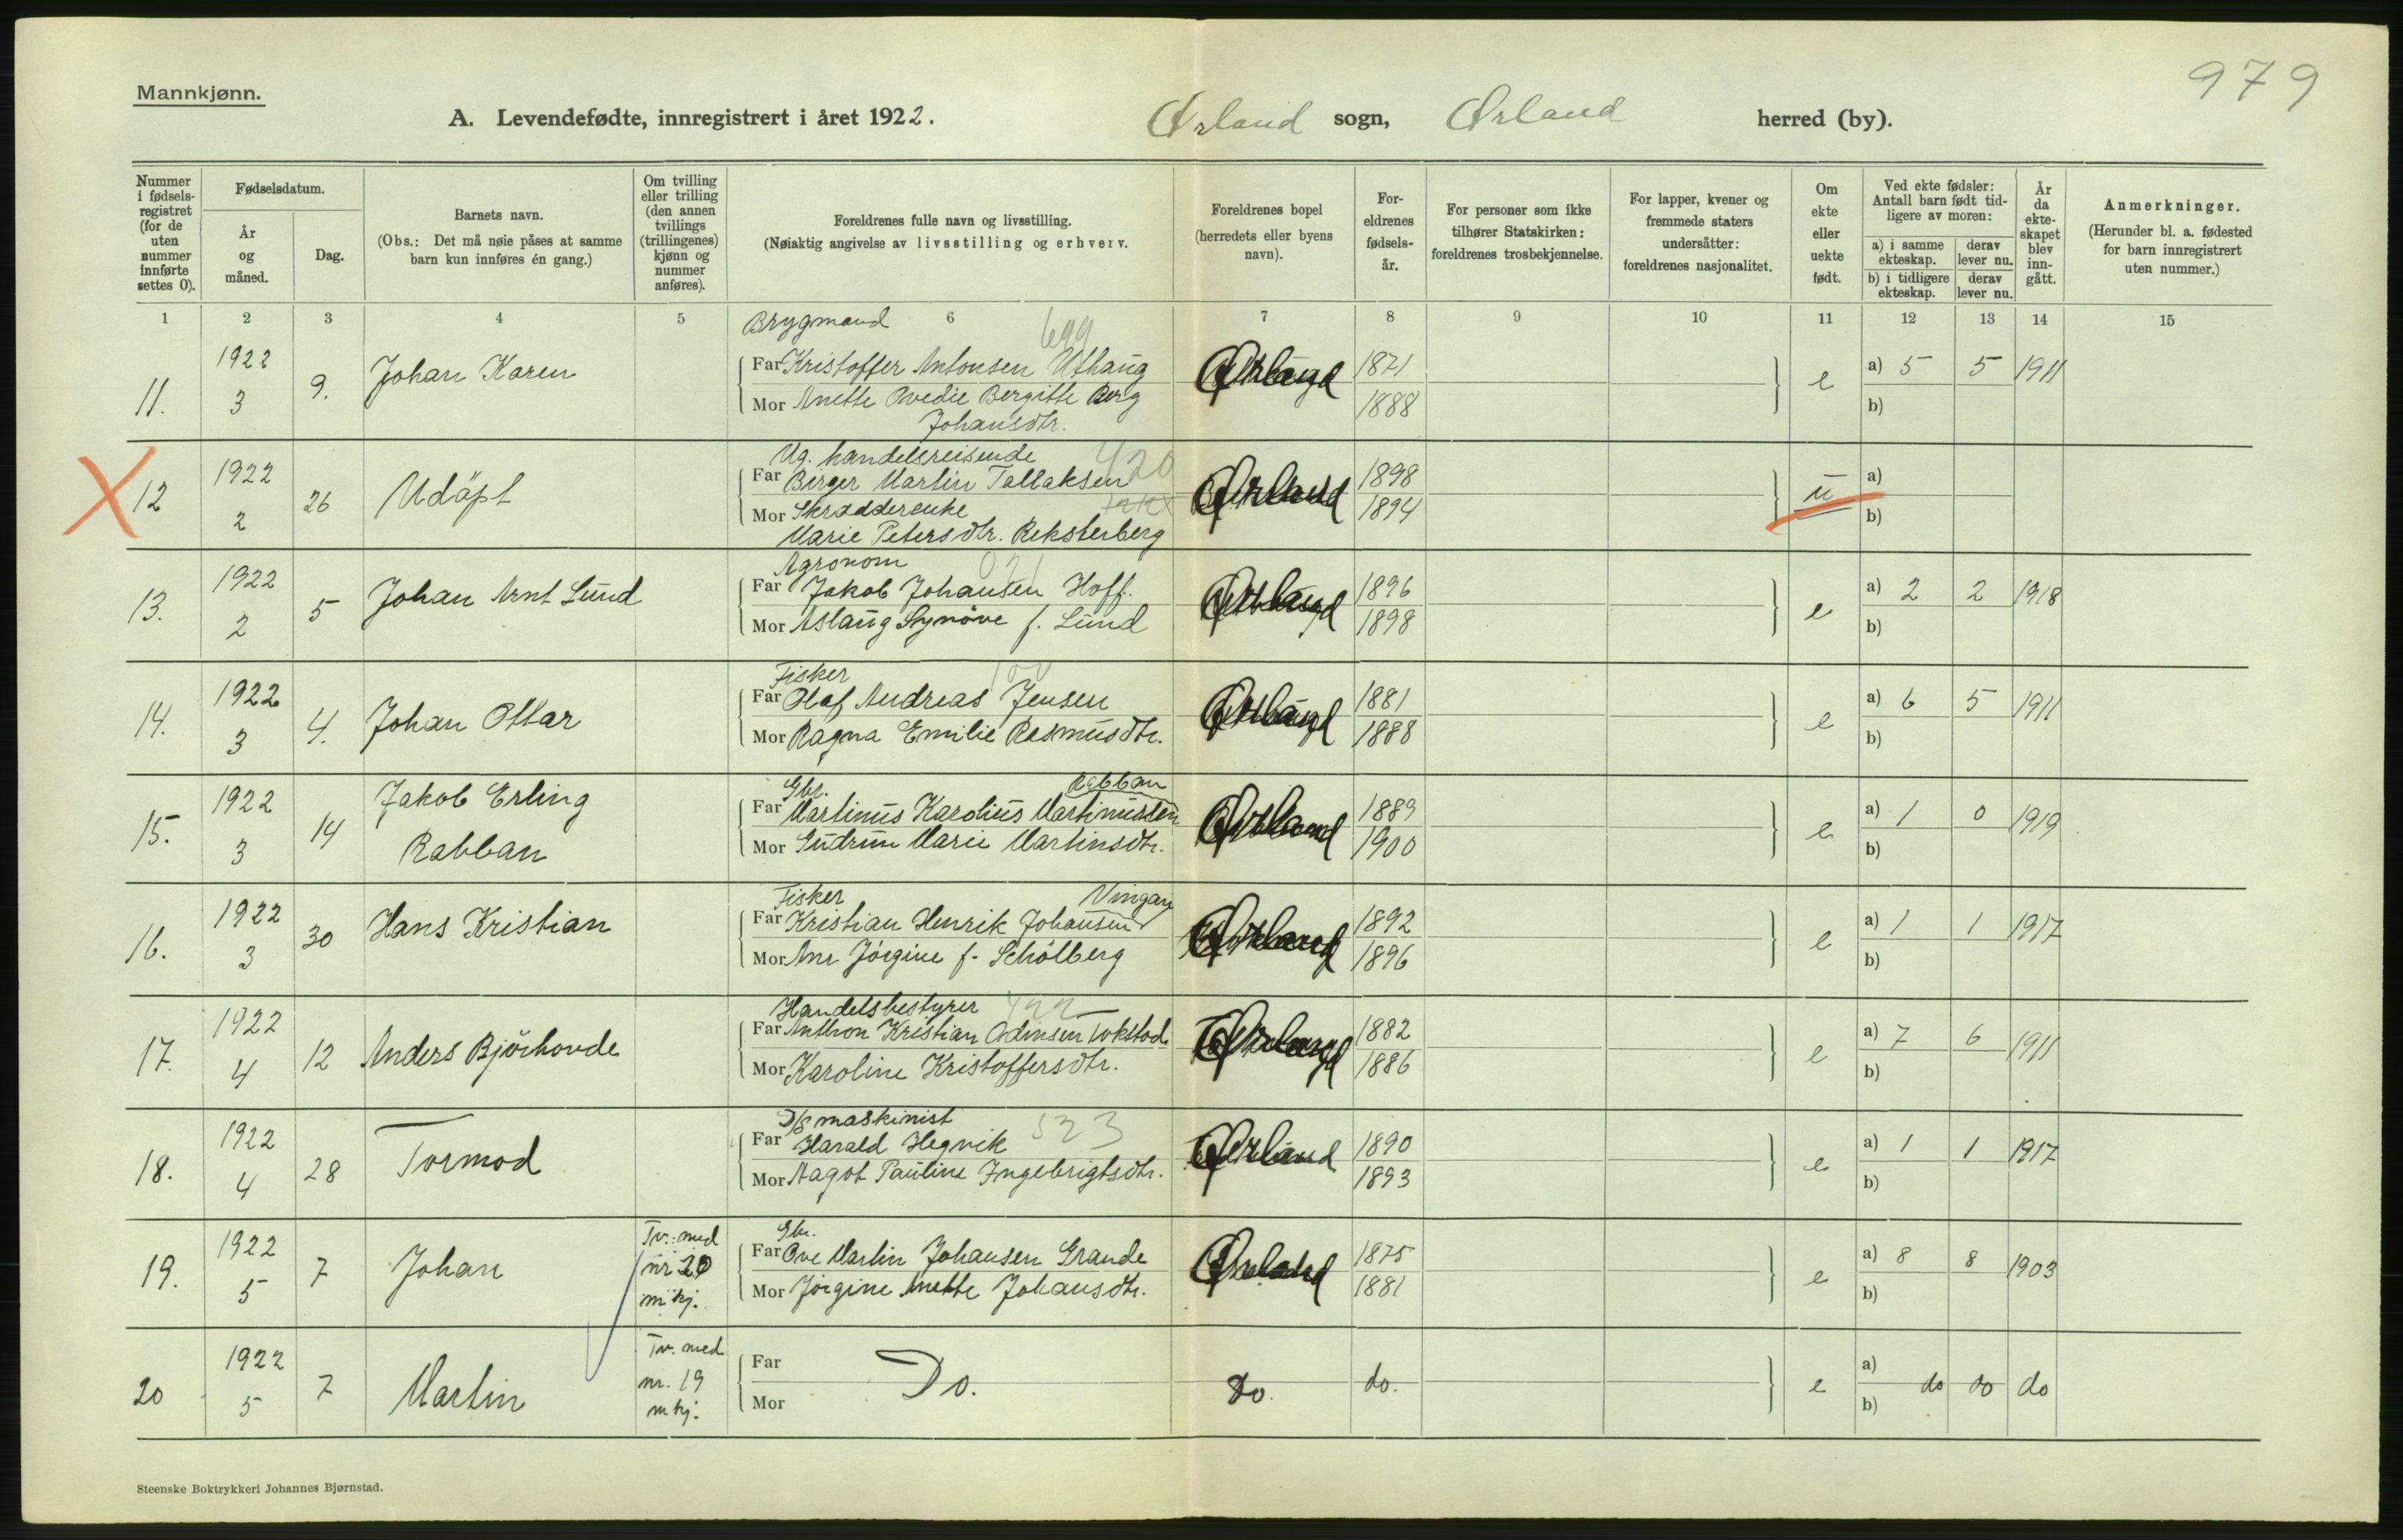 979
Mannkjønn.
A. Levendefødte, innregistrert i året 1922. Ørland sogn, Ørland herred (by).
Nummer i fødsels- registret (for de uten nummer innførte settes 0).
Fødselsdatum.
År og måned.
Dag.
Barnets navn.
(Obs.: Det må nøie påses at samme barn kun innføres én gang.)
Om tvilling eller trilling (den annen tvillings (trillingenes) kjønn og nummer anføres).
Foreldrenes fulle navn og livsstilling.
(Nøiaktig angivelse av livsstilling og erhverv.
Foreldrenes bopel (herredets eller byens navn).
For- eldrenes fødsels- år.
For personer som ikke tilhører Statskirken: foreldrenes trosbekjennelse.
For lapper, kvener og fremmede staters undersåtter: foreldrenes nasjonalitet.
Om ekte eller uekte født.
Ved ekte fødsler: Antall barn født tid- ligere av moren:
a) i samme ekteskap. derav lever nu.
b) i tidligere ekteskap. derav lever nu.
År da ekte- skapet blev inn- gått.
Anmerkninger.
(Herunder bl. a. fødested for barn innregistrert uten nummer.)
1 2 3 4 5 6 7 8 9 10 11 12 13 14 15
Brygmand 699
11. 1922 3 9. Johan Karen
Far Kristoffer Antonsen Uthaug Ørland 1871 e a) 5 5 1911
Mor Anette Ovedie Bergitte Berg 1888 b)
Johansdtr.
Ug. handelsreisende 420
X 12 1922 2 26 Udöpt
Far Birger Martin Tallaksen Ørland 1898 u a)
Mor Skrædderenke 1894 b)
Marie Petersdtr. Reksterberg
Agronom 021
13. 1922 2 5 Johan Arnt Lund
Far Jakob Johansen Hoff. Ørland 1896 e a) 2 2 1918
Mor Aslaug Synöve f. Lund 1898 b)
Fisker
14. 1922 3 4. Johan Ottar
Far Olaf Andreas Jensen Ørland 1881 e a) 6 5 1911
Mor Ragna Emilie Rasmusdtr. 1888 b)
Gbr. Rabban
15. 1922 3 14 Jakob Erling Rabban
Far Martinus Karolius Martinussen Ørland 1889 e a) 1 0 1919
Mor Gudrun Marie Martinsdtr. 1900 b)
Fisker Vingan
16. 1922 3 30 Hans Kristian
Far Kristian Henrik Johansen Ørland 1892 e a) 1 1 1917
Mor Ane Jörgine f. Schölberg 1896 b)
Handelsbestyrer
17. 1922 4 12 Anders Björhovde
Far Anthon Kristian Odinsen Tokstad Ørland 1882 e a) 7 6 1911
Mor Karoline Kristoffersdtr. 1886 b)
D/S maskinist 523
18. 1922 4 28 Tormod
Far Harald Hegvik Ørland 1890 e a) 1 1 1917
Mor Magot Pauline Ingebrigtsdtr. 1893 b)
Gbr.
19. 1922 5 7 Johan Tv. med nr 20 m kj.
Far Ove Martin Johansen Grande Ørland 1875 e a) 8 8 1903
Mor Jörgine Anette Johansdtr. 1881 b)
20 1922 5 7 Martin Tv. med nr. 19 m kj.
Far Do. Do. do. e a) do do do
Mor b)
Steenske Boktrykkeri Johannes Bjørnstad.